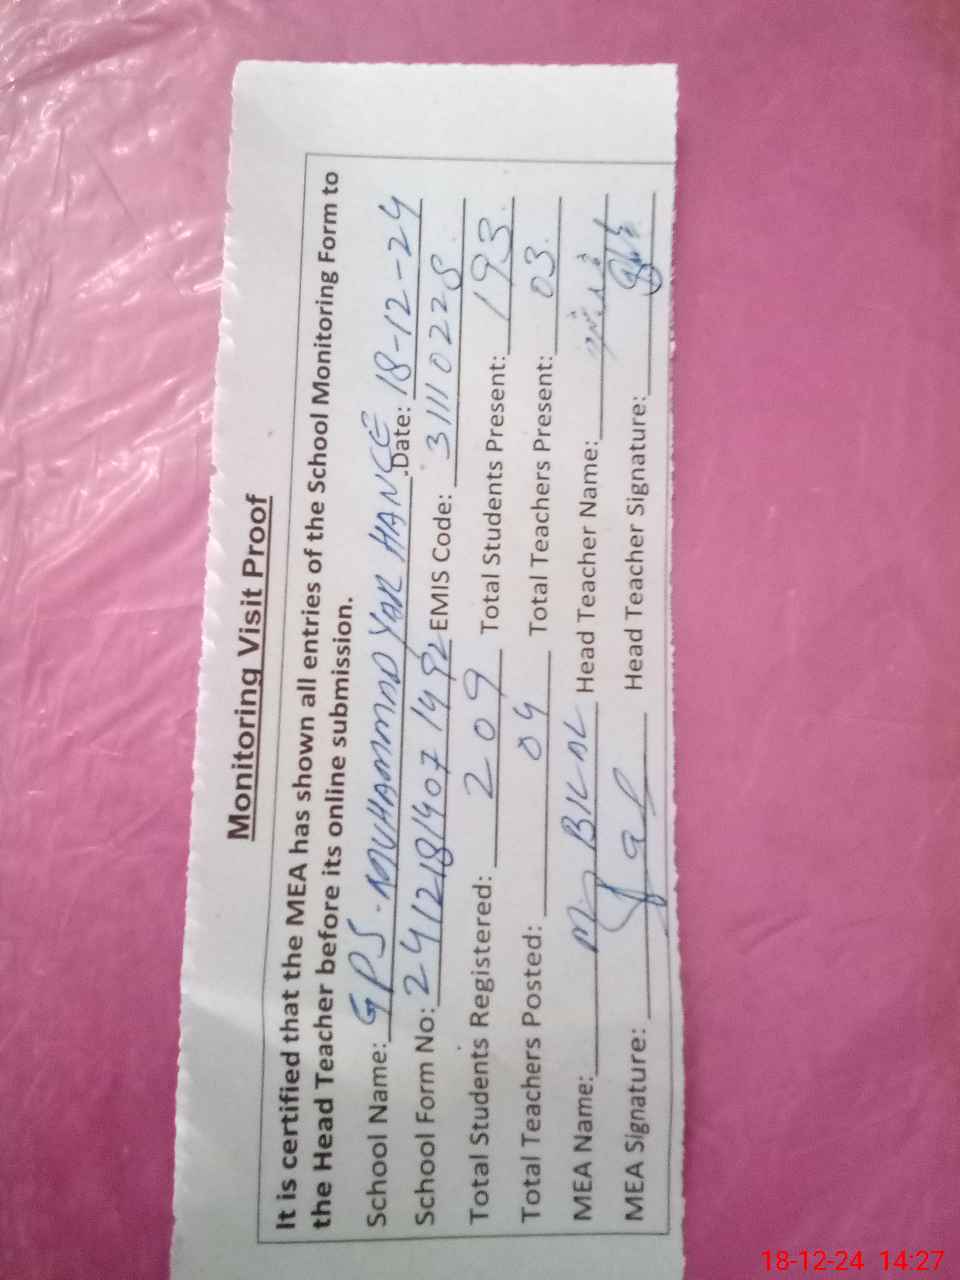 Monitoring Visit Proof
It is certified that the MEA has shown all entries of the School Monitoring Form to
the Head Teacher before its online submission.
School Name: GPS. MUHAMMAD YAR HANCE Date: 18-12-24
School Form No: 24121814071492 EMIS Code: 31110228
Total Students Registered: 209 Total Students Present: 193.
Total Teachers Posted: 04 Total Teachers Present: 03.
MEA Name: M. BILAL Head Teacher Name:
MEA Signature: Head Teacher Signature:
18-12-24 14:27